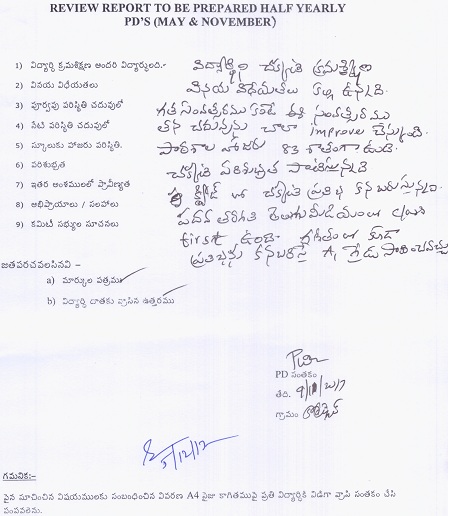 REVIEW REPORT TO BE PREPARED HALF YEARLY
PD'S (MAY & NOVEMBER)
1) విద్యార్థి క్రమశిక్షణ అందరి విద్యార్థులది.- విద్యార్థిని చక్కటి క్రమశిక్షణ
2) వినయ విధేయతలు వినయ విధేయతలు కల్గి ఉన్నది.
3) పూర్వపు పరిస్థితి చదువులో గత సంవత్సరము కంటే ఈ సంవత్సరము
4) నేటి పరిస్థితి చదువులో తన చదువును చాలా improve చేస్కుంది.
5) స్కూలుకు హాజరు పరిస్థితి. పాఠశాల హాజరు 83 శాతంగా ఉంది.
6) పరిశుభ్రత చక్కటి పరిశుభ్రత పాటిస్తున్నది
7) ఇతర అంశములలో ప్రావీణ్యత లో చక్కటి ప్రతిభ కనబరుస్తున్నది.
8) అభిప్రాయాలు / సలహాలు పదవ తరగతి తెలుగుమీడియంలో class
9) కమిటీ సభ్యుల సూచనలు first ఉంది. గణితంలో కూడా
ప్రతిభను కనబరిస్తే A1 గ్రేడు సాధించవచ్చు
జతపరచవలసినవి -
a) మార్కుల పత్రము
b) విద్యార్థి దాతకు వ్రాసిన ఉత్తరము
PD సంతకం
తేది.
గ్రామం
5/12/12
గమనిక:-
పైన సూచించిన విషయములకు సంబంధించిన వివరణ A4 సైజు కాగితముపై ప్రతి విద్యార్థికి విడిగా వ్రాసి సంతకం చేసి
పంపవలెను.